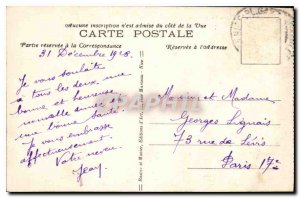 Aucune inscription n'est admise du côté de la Vue
CARTE POSTALE
Partie réservée à la Correspondance
Réservée à l'Adresse
31 Décembre 1928.
Je vous souhaite
à tous les deux, une
bonne et heureuse
nouvelle année et
une bonne santé.
Je vous embrasse
affectueusement
Votre neveu
Jean
Monsieur et Madame
Georges Lignais
73 rue de Lévis
Paris 17e